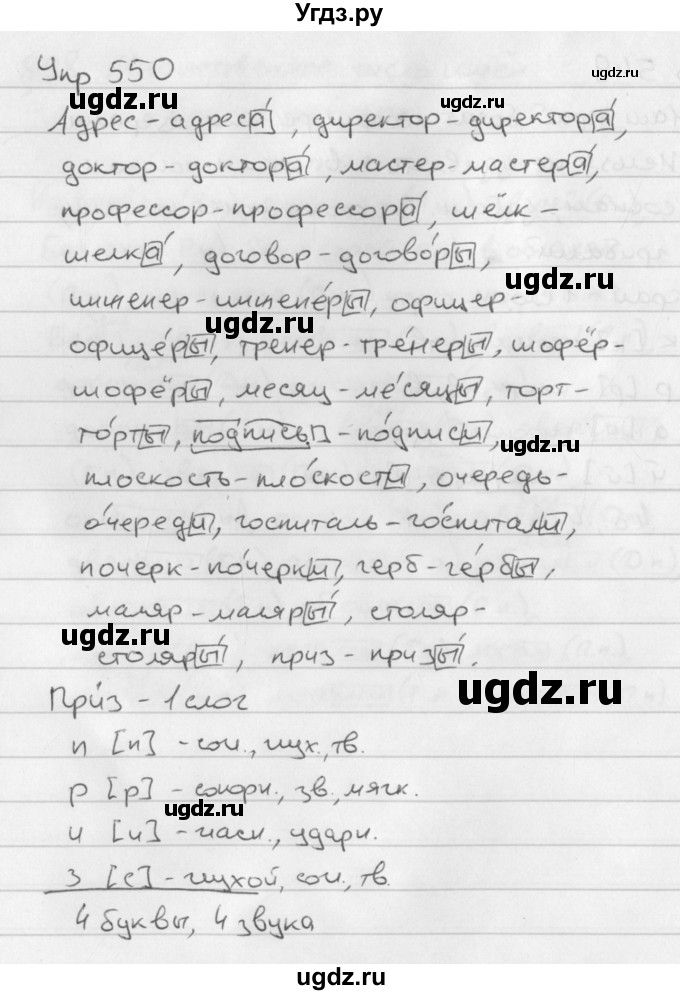 Угдз.ру
Упр 550
ugdz.ru
ugdz.ru
ugdz.ru
Адрес - адреса́, директор - директора́,
доктор - доктора́, мастер - мастера́,
профессор - профессора́, шёлк -
шелка́, договор - догово́ры,
ugdz.ru
инженер - инжене́ры, офицер -
ugdz.ru
офице́ры, тренер - тре́неры, шофёр -
шофёры, месяц - ме́сяцы, торт -
то́рты, подпись - по́дписи,
ugdz.ru
плоскость - пло́скости, очередь -
о́череди, госпиталь - го́спитали,
почерк - по́черки, герб - ге́рбы,
маляр - маляры́, столяр -
ugdz.ru
столяры́, приз - призы́.
ugdz.ru
При́з - 1 слог
п [п] - сог., глух., тв.
р [р] - сонорн., зв., мягк.
ugdz.ru
и [и] - гласн., ударн.
з [с] - глухой, сог., тв.
4 буквы, 4 звука
ugdz.ru